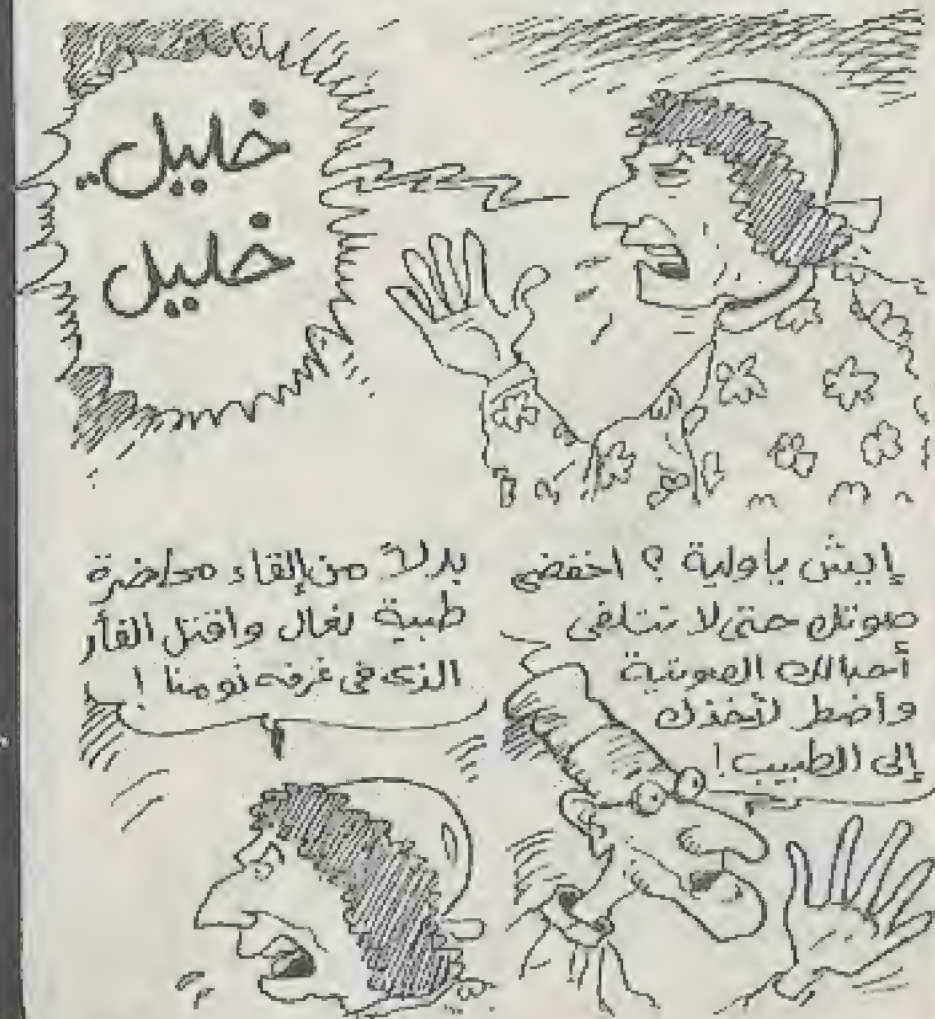 خليل..
خليل
إيش ياولية ؟ اخفضي
صوتك حتى لا تتلفي
أحبالك الصوتية
وأضطر لأخذك
إلى الطبيب!
بدلاً من إلقاء محاضرة
طبية تعال واقتل الفأر
الذي في غرفة نومنا !